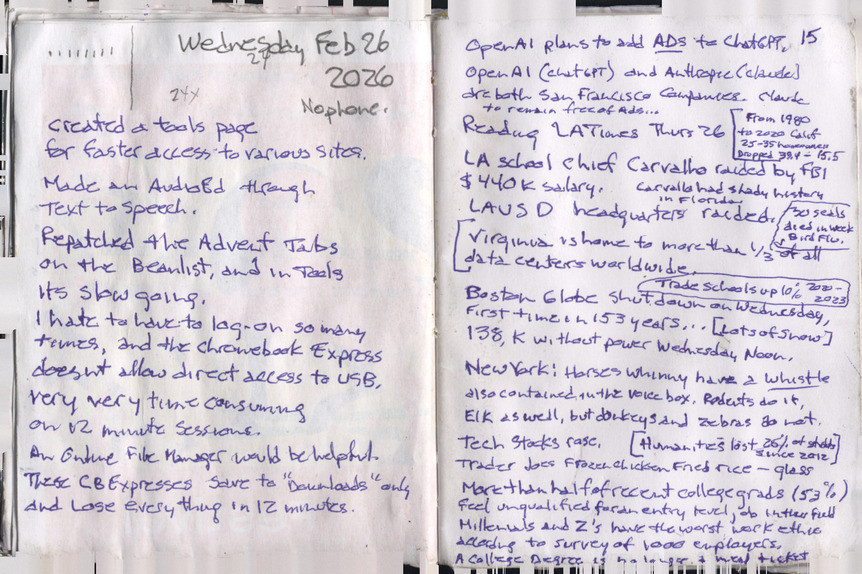 Wednesday Feb 26
27
2026
24x
No phone.
Created a tools page
for faster access to various sites.
Made an AudioEd through
Text to Speech.
Repatched the Advent Tabs
on the Beanlist, and in Tools
Its slow going.
I hate to have to log-on so many
times, and the chromebook Express
doesnt allow direct access to USB,
very very time consuming
on 12 minute sessions.
An Online File Manager would be helpful.
These CB Expresses save to "Downloads" only
and Lose everything in 12 minutes.
15
OpenAI plans to add ADs to ChatGPT,
OpenAI (chatGPT) and Anthropic (claude)
are both San Francisco Companies. Claude
to remain free of Ads...
Reading LATimes Thurs 26
From 1980
to 2020 Calif
25-35 homeowners
Dropped 38.4 - 15.5
LA school chief Carvalho raided by FBI
$440K salary. Carvalho had shady history
in Florida.
LAUSD headquarters raided.
30 seals
died in week
Bird Flu.
Virginia is home to more than 1/3 of all
data centers worldwide.
Trade schools up 10% 2020-
2023
Boston Globe shut down on Wednesday,
First time in 153 years... [Lots of Snow]
138, K without power Wednesday Noon.
New York: Horses whinny have a whistle
also contained in the voice box. Rodents do it,
Elk as well, but donkeys and zebras do not.
Tech Stocks rose. [Humanities lost 26% of studs
since 2012]
Trader Joes Frozen chicken Fried rice - glass
More than half of recent college grads (53%)
feel unqualified for an entry level job in their field
Millenials and Z's have the worst work ethic
according to survey of 1000 employers.
A College Degree is no longer a meal ticket